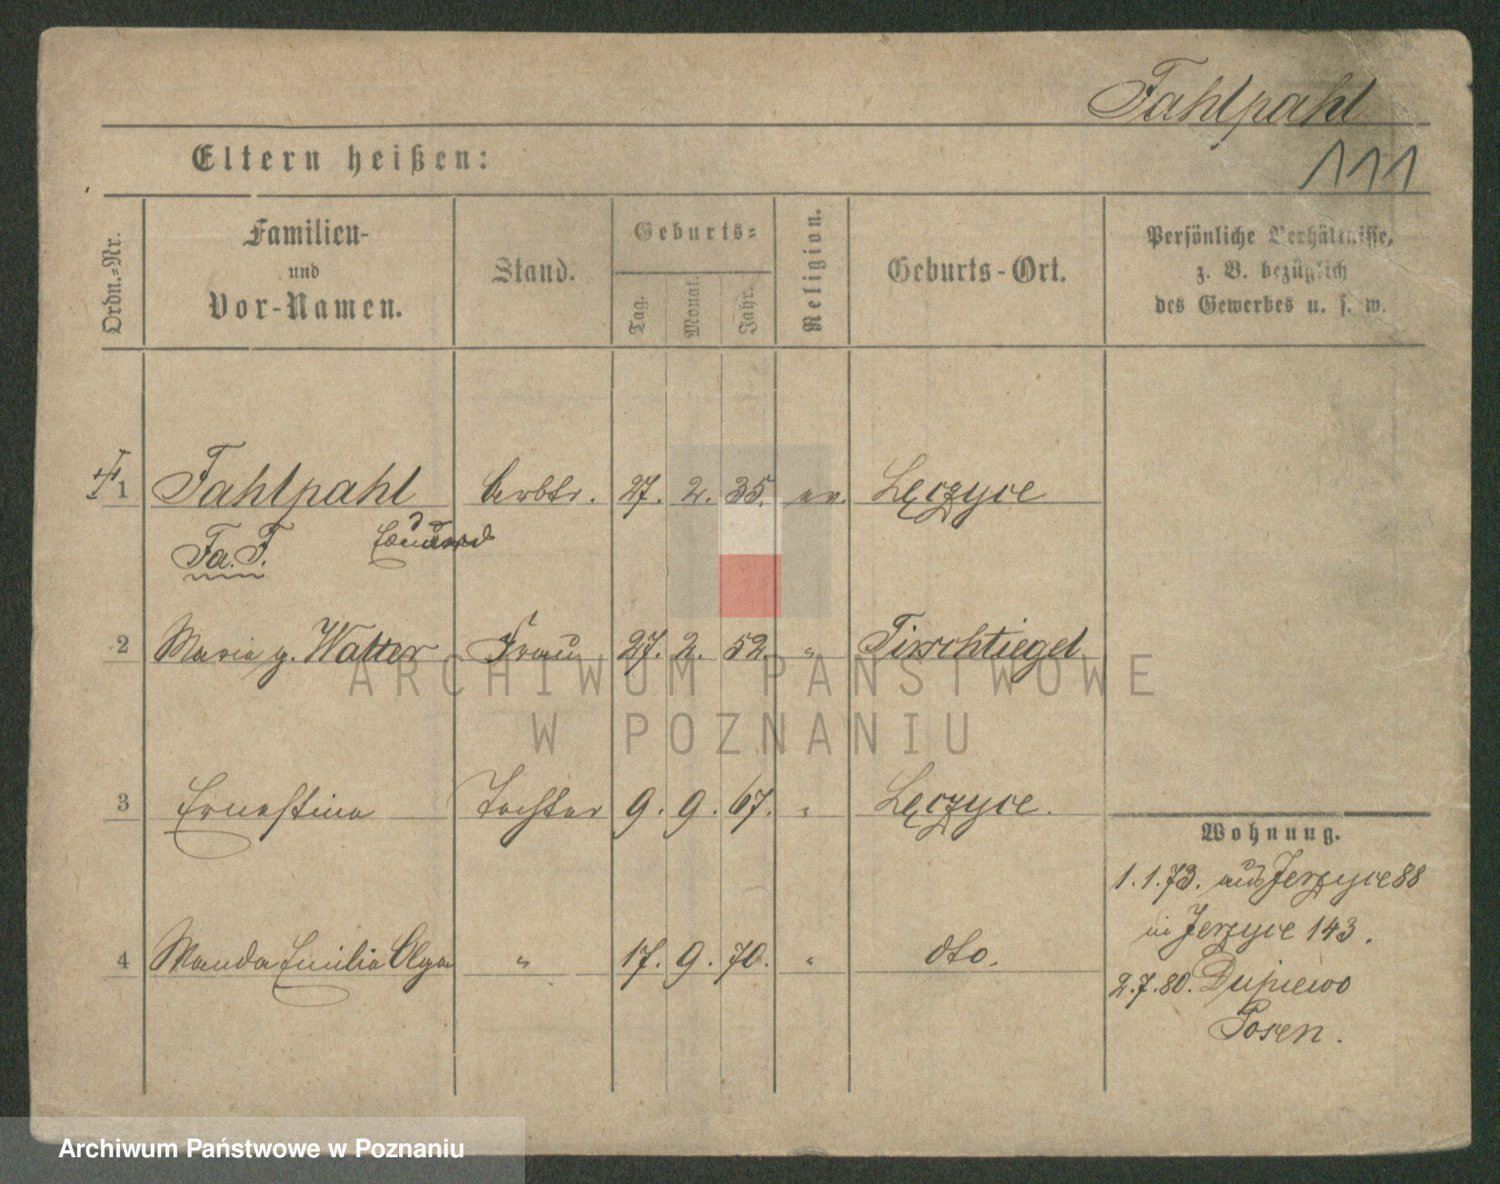 Fahlpahl
Eltern heißen:
111
Ordn.-Nr.
Familien-
und
Vor-Namen.
Stand.
Geburts-
Tag.
Monat.
Jahr.
Religion.
Geburts-Ort.
Persönliche Verhältnisse,
z. B. bezüglich
des Gewerbes u. s. w.
1 Fahlpahl Arbtr. 27. 2. 35. ev. Lęczyce
Fa. F. Eduard
2 Marie g. Walter Frau 27. 2. 52. " Tirschtiegel
ARCHIWUM PAŃSTWOWE
W POZNANIU
3 Ernestine Tochter 9. 9. 67. " Lęczyce.
Wohnung.
1.1.73. aus Jerzyce 88
in Jerzyce 143.
4 Wanda Emilie Olga " 17. 9. 70. " dto.
2.7.80. Dupiewo
Posen.
Archiwum Państwowe w Poznaniu